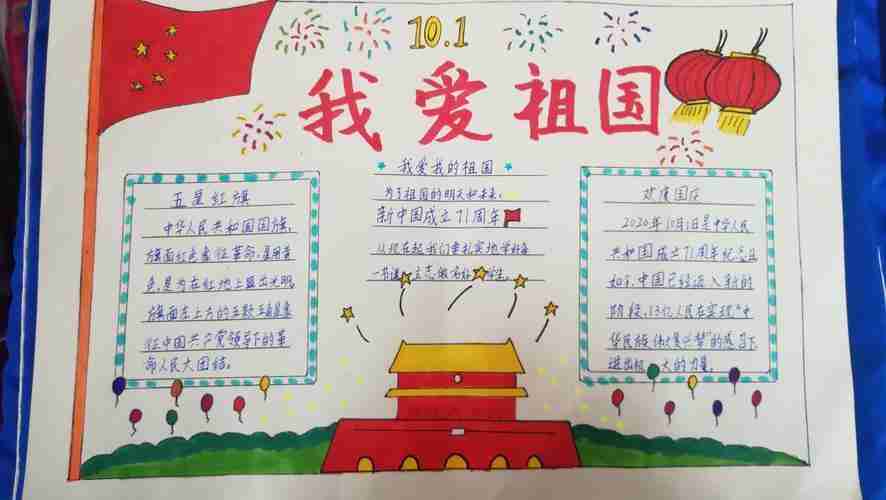 10.1
我爱祖国
五星红旗
中华人民共和国国旗,
旗面红色象征革命,星用黄
色,是为在红地上显出光明,
旗面左上方的五颗五角星象
征中国共产党领导下的革
命人民大团结。
我爱我的祖国
为了祖国的明天和未来,
新中国成立71周年
从现在起我们要扎实地学好每
一节课 立志做名好 学生。
欢度国庆
2020年10月1日是中华人民
共和国成立71周年纪念日
如今,中国已经迈入新的
阶段,13亿人民在实现“中
华民族伟大复兴梦”的感召下
迸出 大的力量。